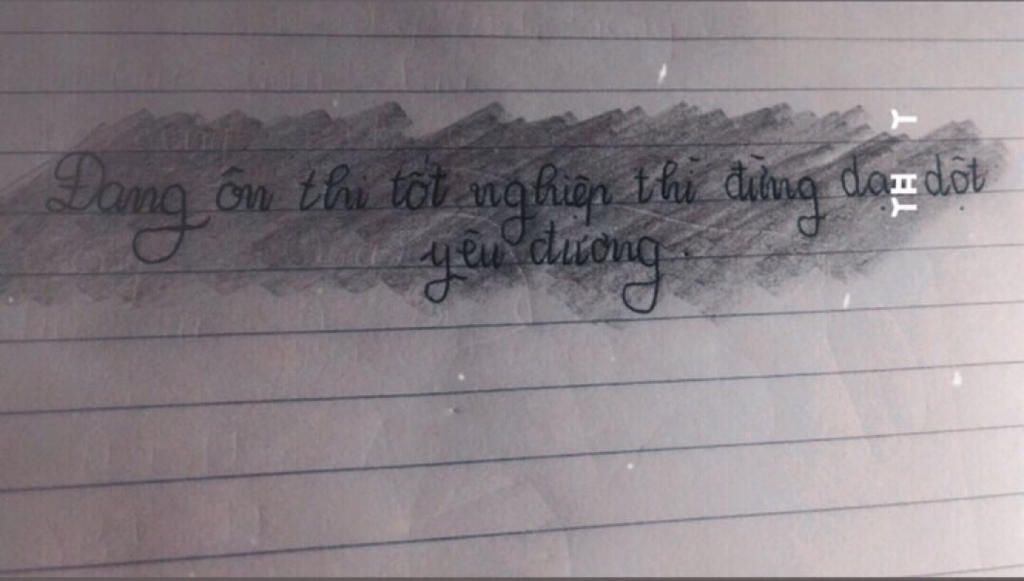 Đang ôn thi tốt nghiệp thì đừng dại dột
yêu đương.
Y
YH